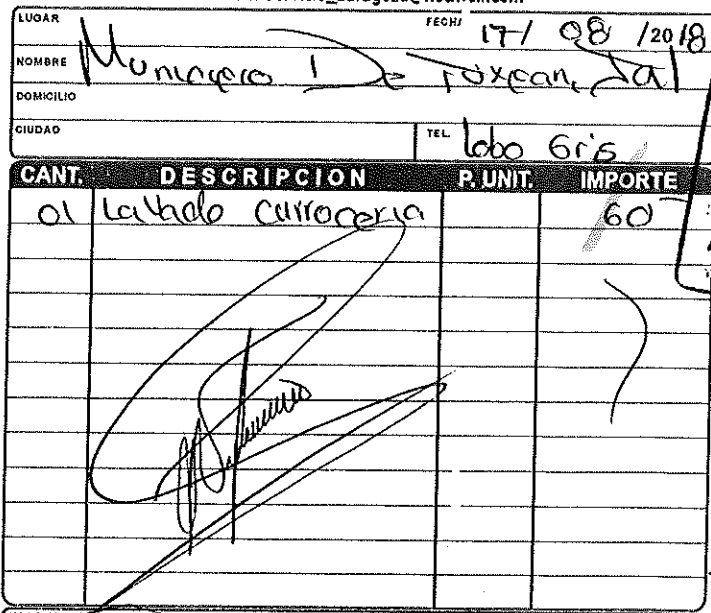 LUGAR FECHA 17/ 08 /2018
NOMBRE Municipio De Tuxpan, Jal
DOMICILIO
CIUDAD TEL. Lobo Gris
CANT. DESCRIPCION P. UNIT. IMPORTE
01 Lavado Carroceria 60